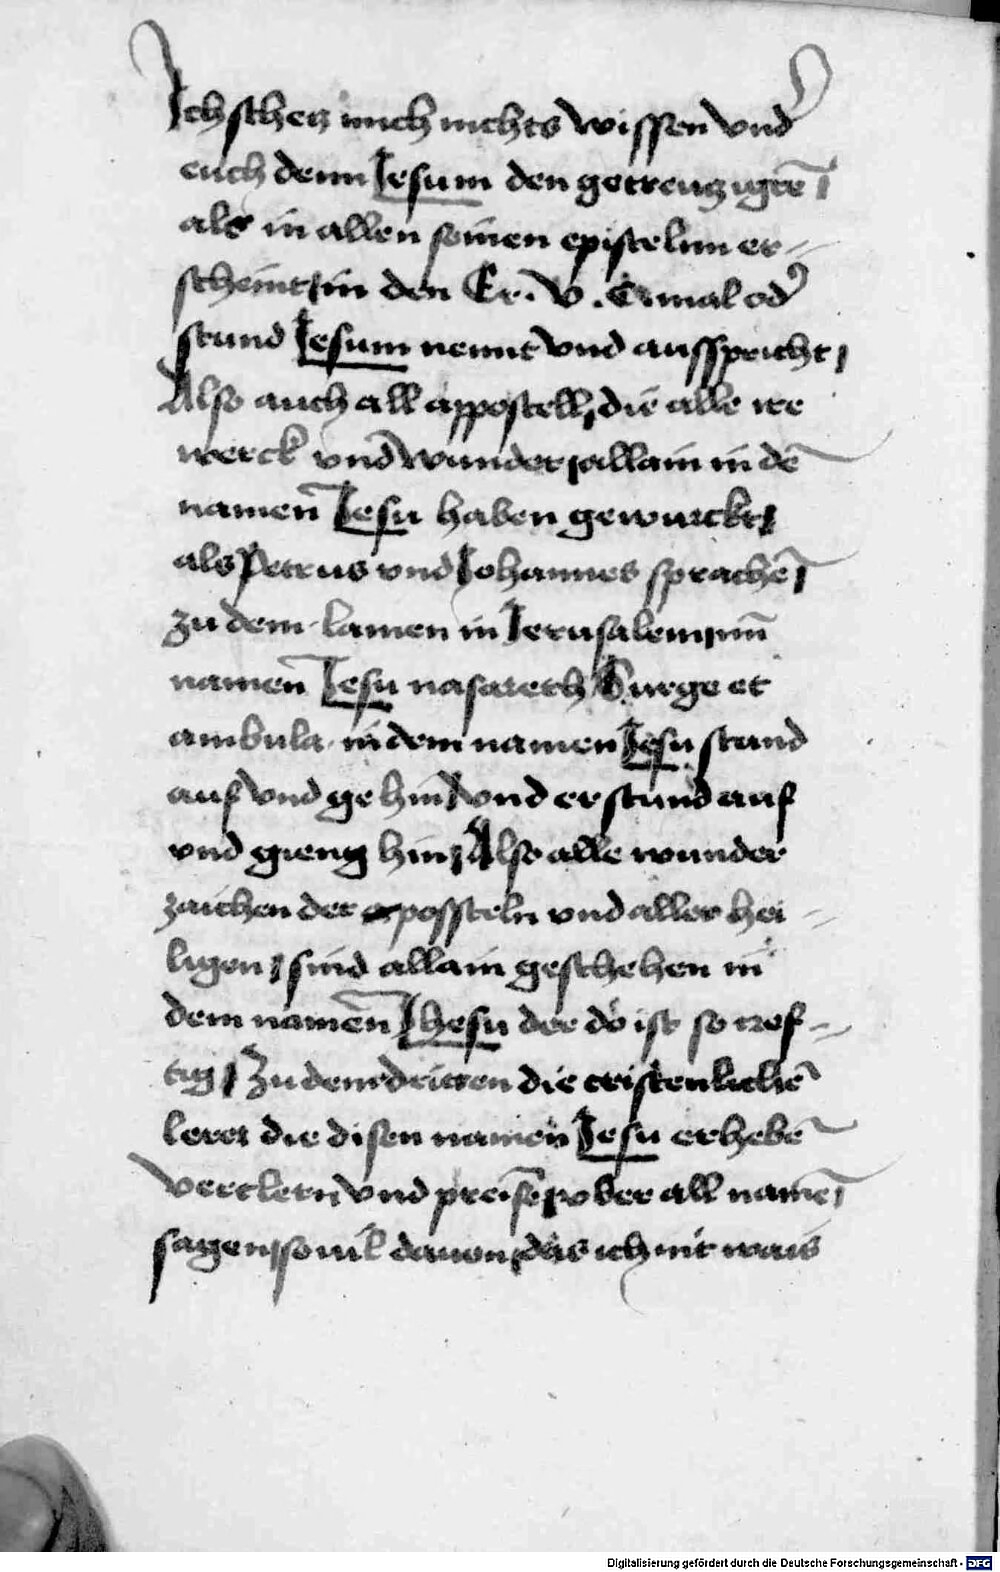 Ich schetz mich nichts wissen vnd
euch denn Jesum den getreutzigtē /
als in allen seinen epistelnn er=
scheint / in den Er . v . C mal od
stund Jesum nennt vnd ausspricht /
Also auch all appostell / die alle ire
werck vnd wunder / allain in dē
namen Jesu haben gewurckt /
als Petrus vnd Johannes sprachē /
zu dem lamen in Jerusalem / im
namen Jesu nasareth Surge et
ambula . in dem namen Jesu stand
auf vnd ge hin / vnd er stund auf
vnd gieng hin / Also alle wunder
zaichen der apossteln vnd aller hei=
ligen / sind allain geschehen in
dem namen Jhesu der do ist so cref=
tig / Zu dem dritten die cristenlichē
lerer die disen namen Jesu erhebē
verclern vnd preisē / vber all namē /
sagen / so vil dauon / das ich nit wais
Digitalisierung gefördert durch die Deutsche Forschungsgemeinschaft - DFG